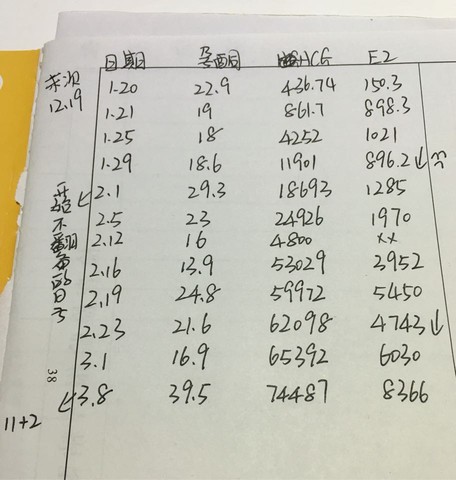 日期 孕酮 HCG E2
末次 1.20 22.9 436.74 150.3
12.19 1.21 19 861.7 898.3
1.25 18 4252 1021
1.29 18.6 11901 896.2↓
开始不翻倍的日子 2.1 29.3 18693 1285
2.5 23 24926 1970
2.12 16 4800 xx
2.16 13.9 53029 3952
2.19 24.8 59972 5450
2.23 21.6 62098 4743↓
38 3.1 16.9 65392 6030
3.8 39.5 74487 8366
11+2